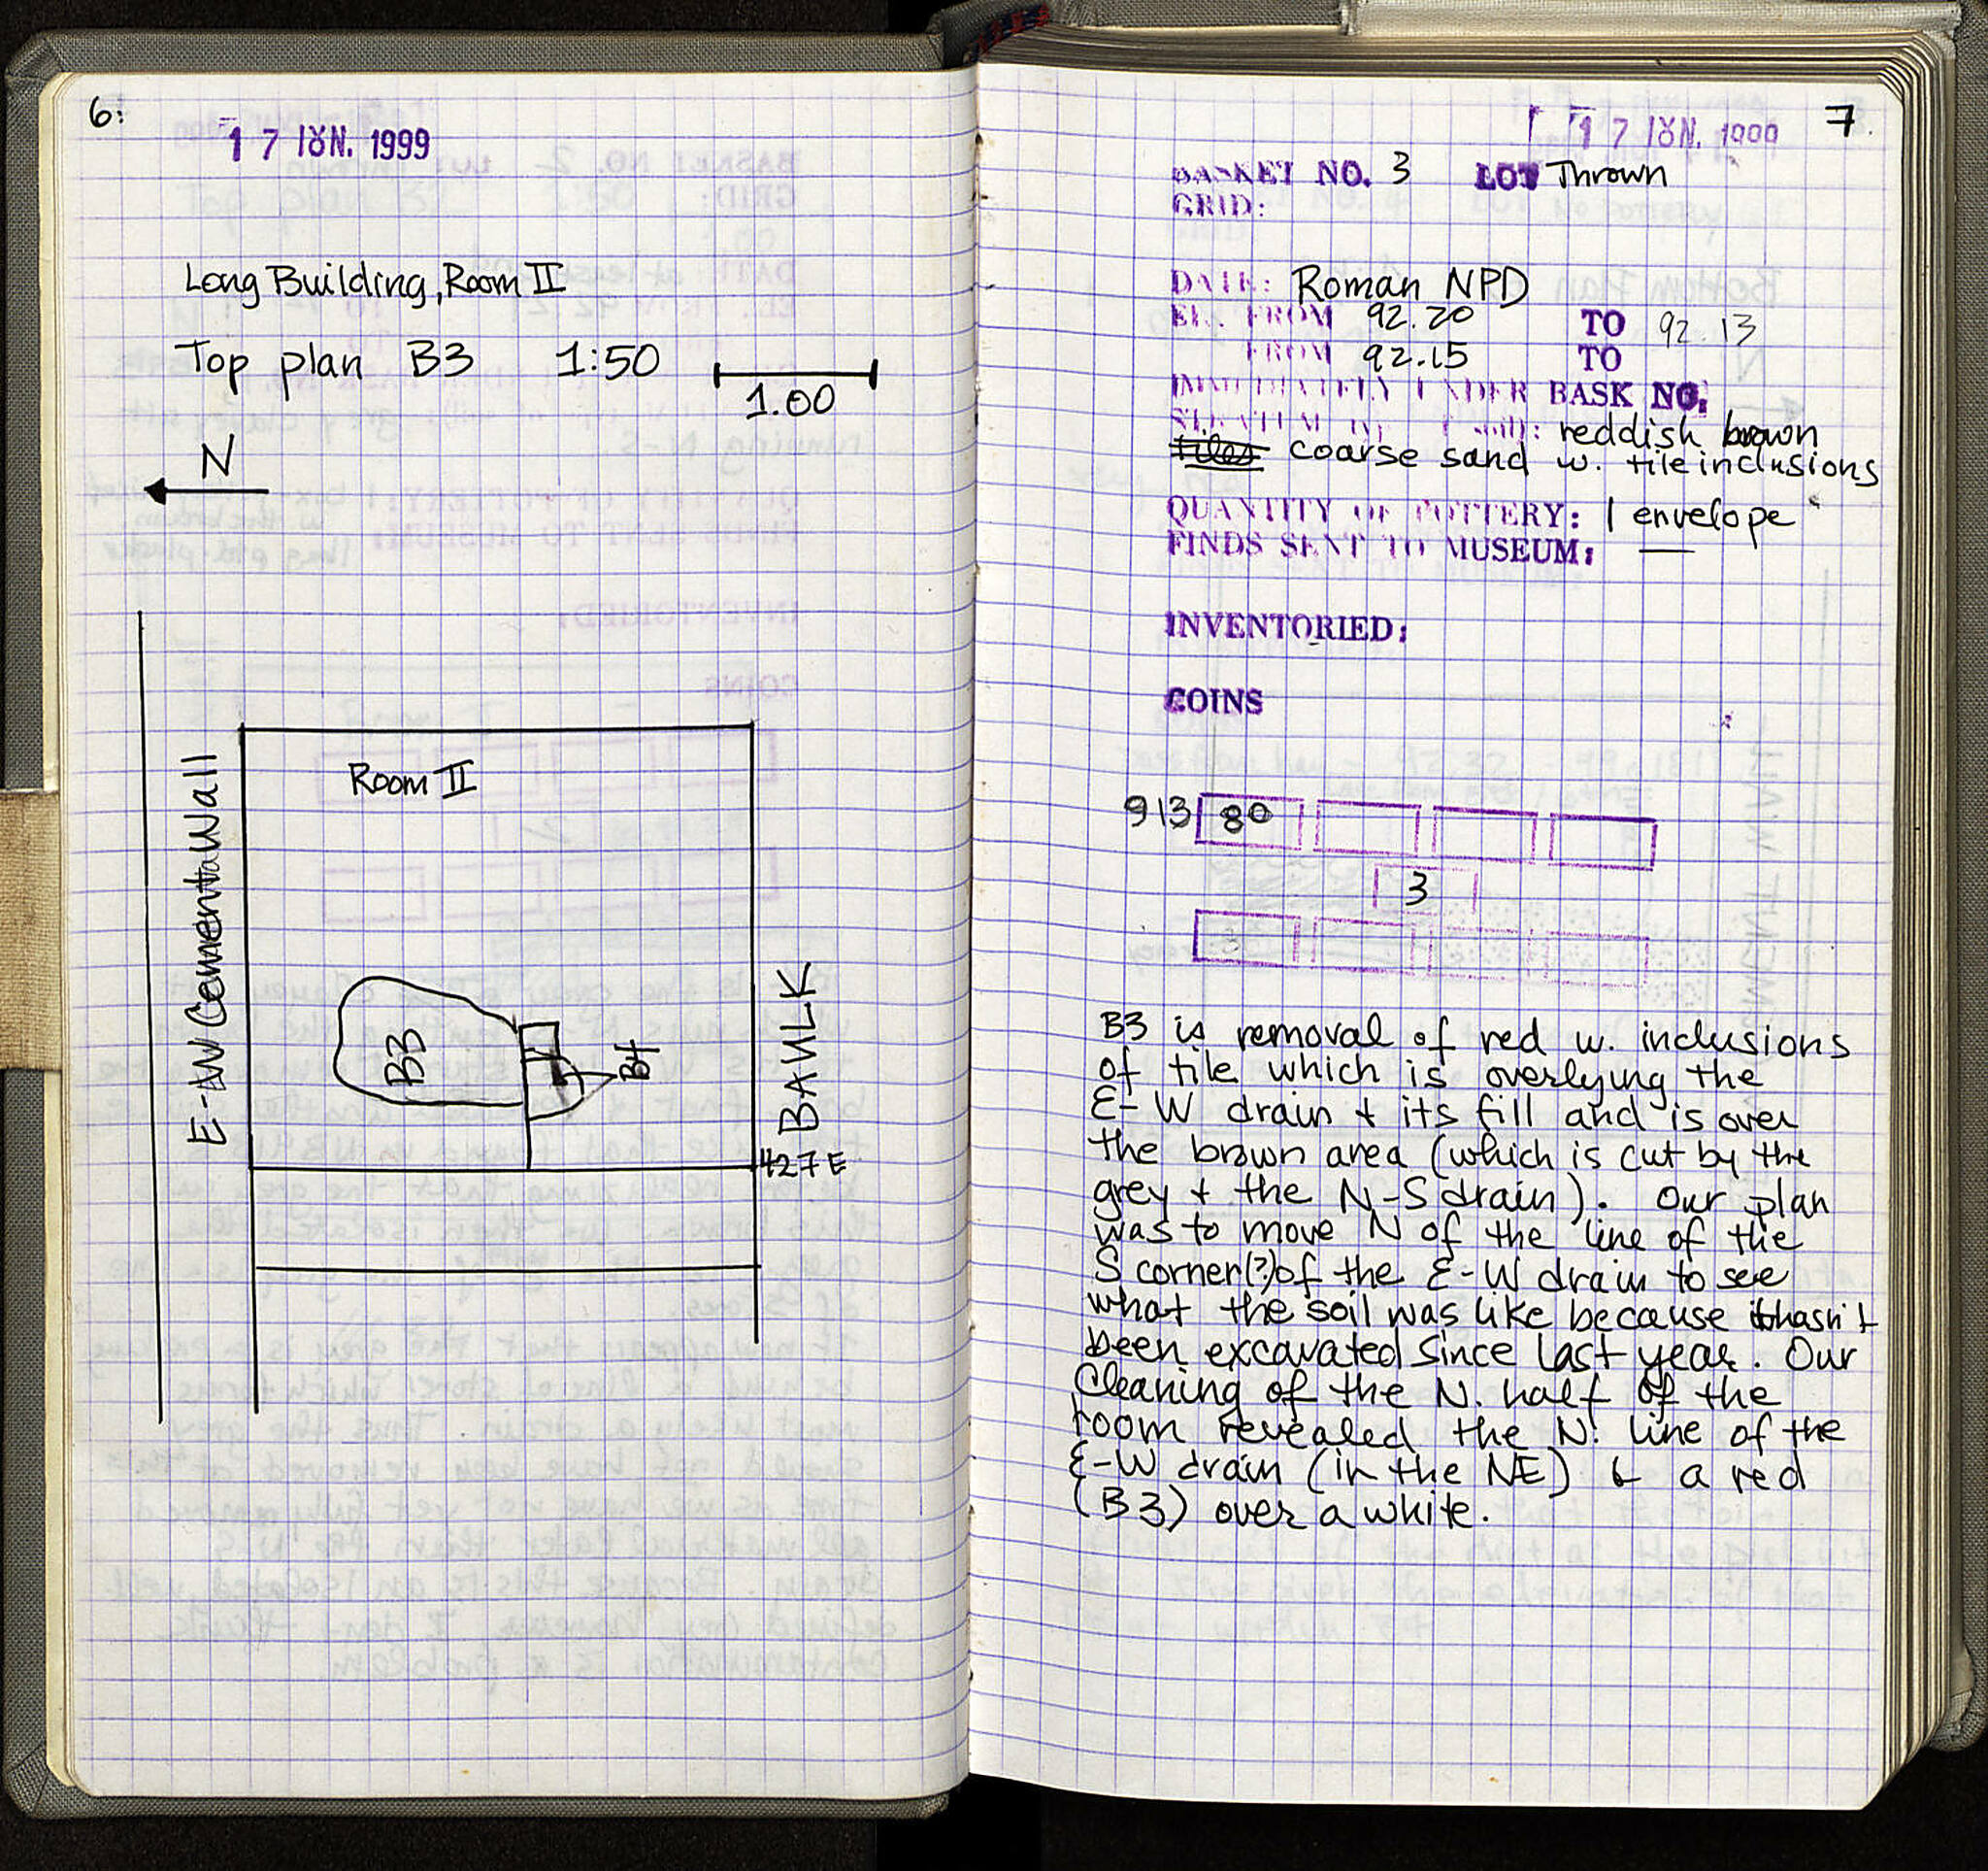 6:
17 ΙΟΥΝ. 1999
Long Building, Room II
Top plan B3 1:50
1.00
N
E-W Cement Wall
Room II
B3
B4
BAULK
427E
7.
17 ΙΟΥΝ. 1999
BASKET NO. 3 LOT Thrown
GRID:
DATE: Roman NPD
EL. FROM 92.20 TO 92.13
FROM 92.15 TO
IMMEDIATELY UNDER BASK NO.
STRATUM soil): reddish brown
tiles coarse sand w. tile inclusions
QUANTITY OF POTTERY: 1 envelope
FINDS SENT TO MUSEUM: —
INVENTORIED:
COINS
913 80
3
B3 is removal of red w. inclusions
of tile which is overlying the
E-W drain + its fill and is over
the brown area (which is cut by the
grey + the N-S drain). Our plan
was to move N of the line of the
S corner(?) of the E-W drain to see
what the soil was like because it hasn't
been excavated since last year. Our
Cleaning of the N. half of the
room revealed the N. line of the
E-W drain (in the NE) & a red
(B3) over a white.